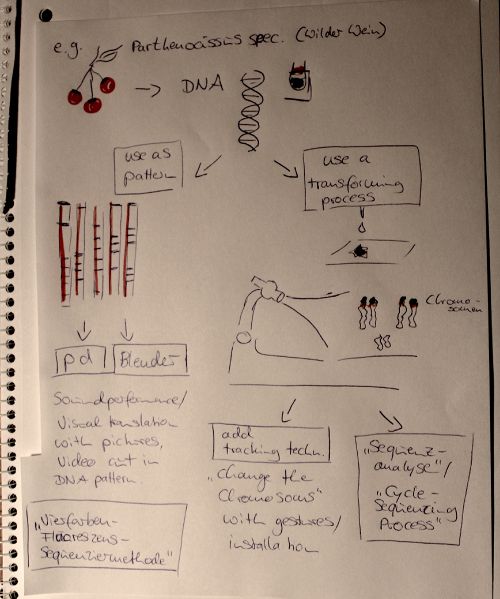 e.g. Parthenocissus spec. (Wilder Wein)
→ DNA
use as
pattern
use a
transforming
process
Chromo-
somen
pd
Blender
Soundperformance/
Visual translation
with pictures,
Video cut in
DNA pattern.
add
tracking techn.
"Change the
Chromosoms"
with gestures/
installation
„Sequenz-
analyse"/
„Cycle-
Sequenzing
Process"
„Vierfarben-
Fluoreszens-
Sequenziermethode"